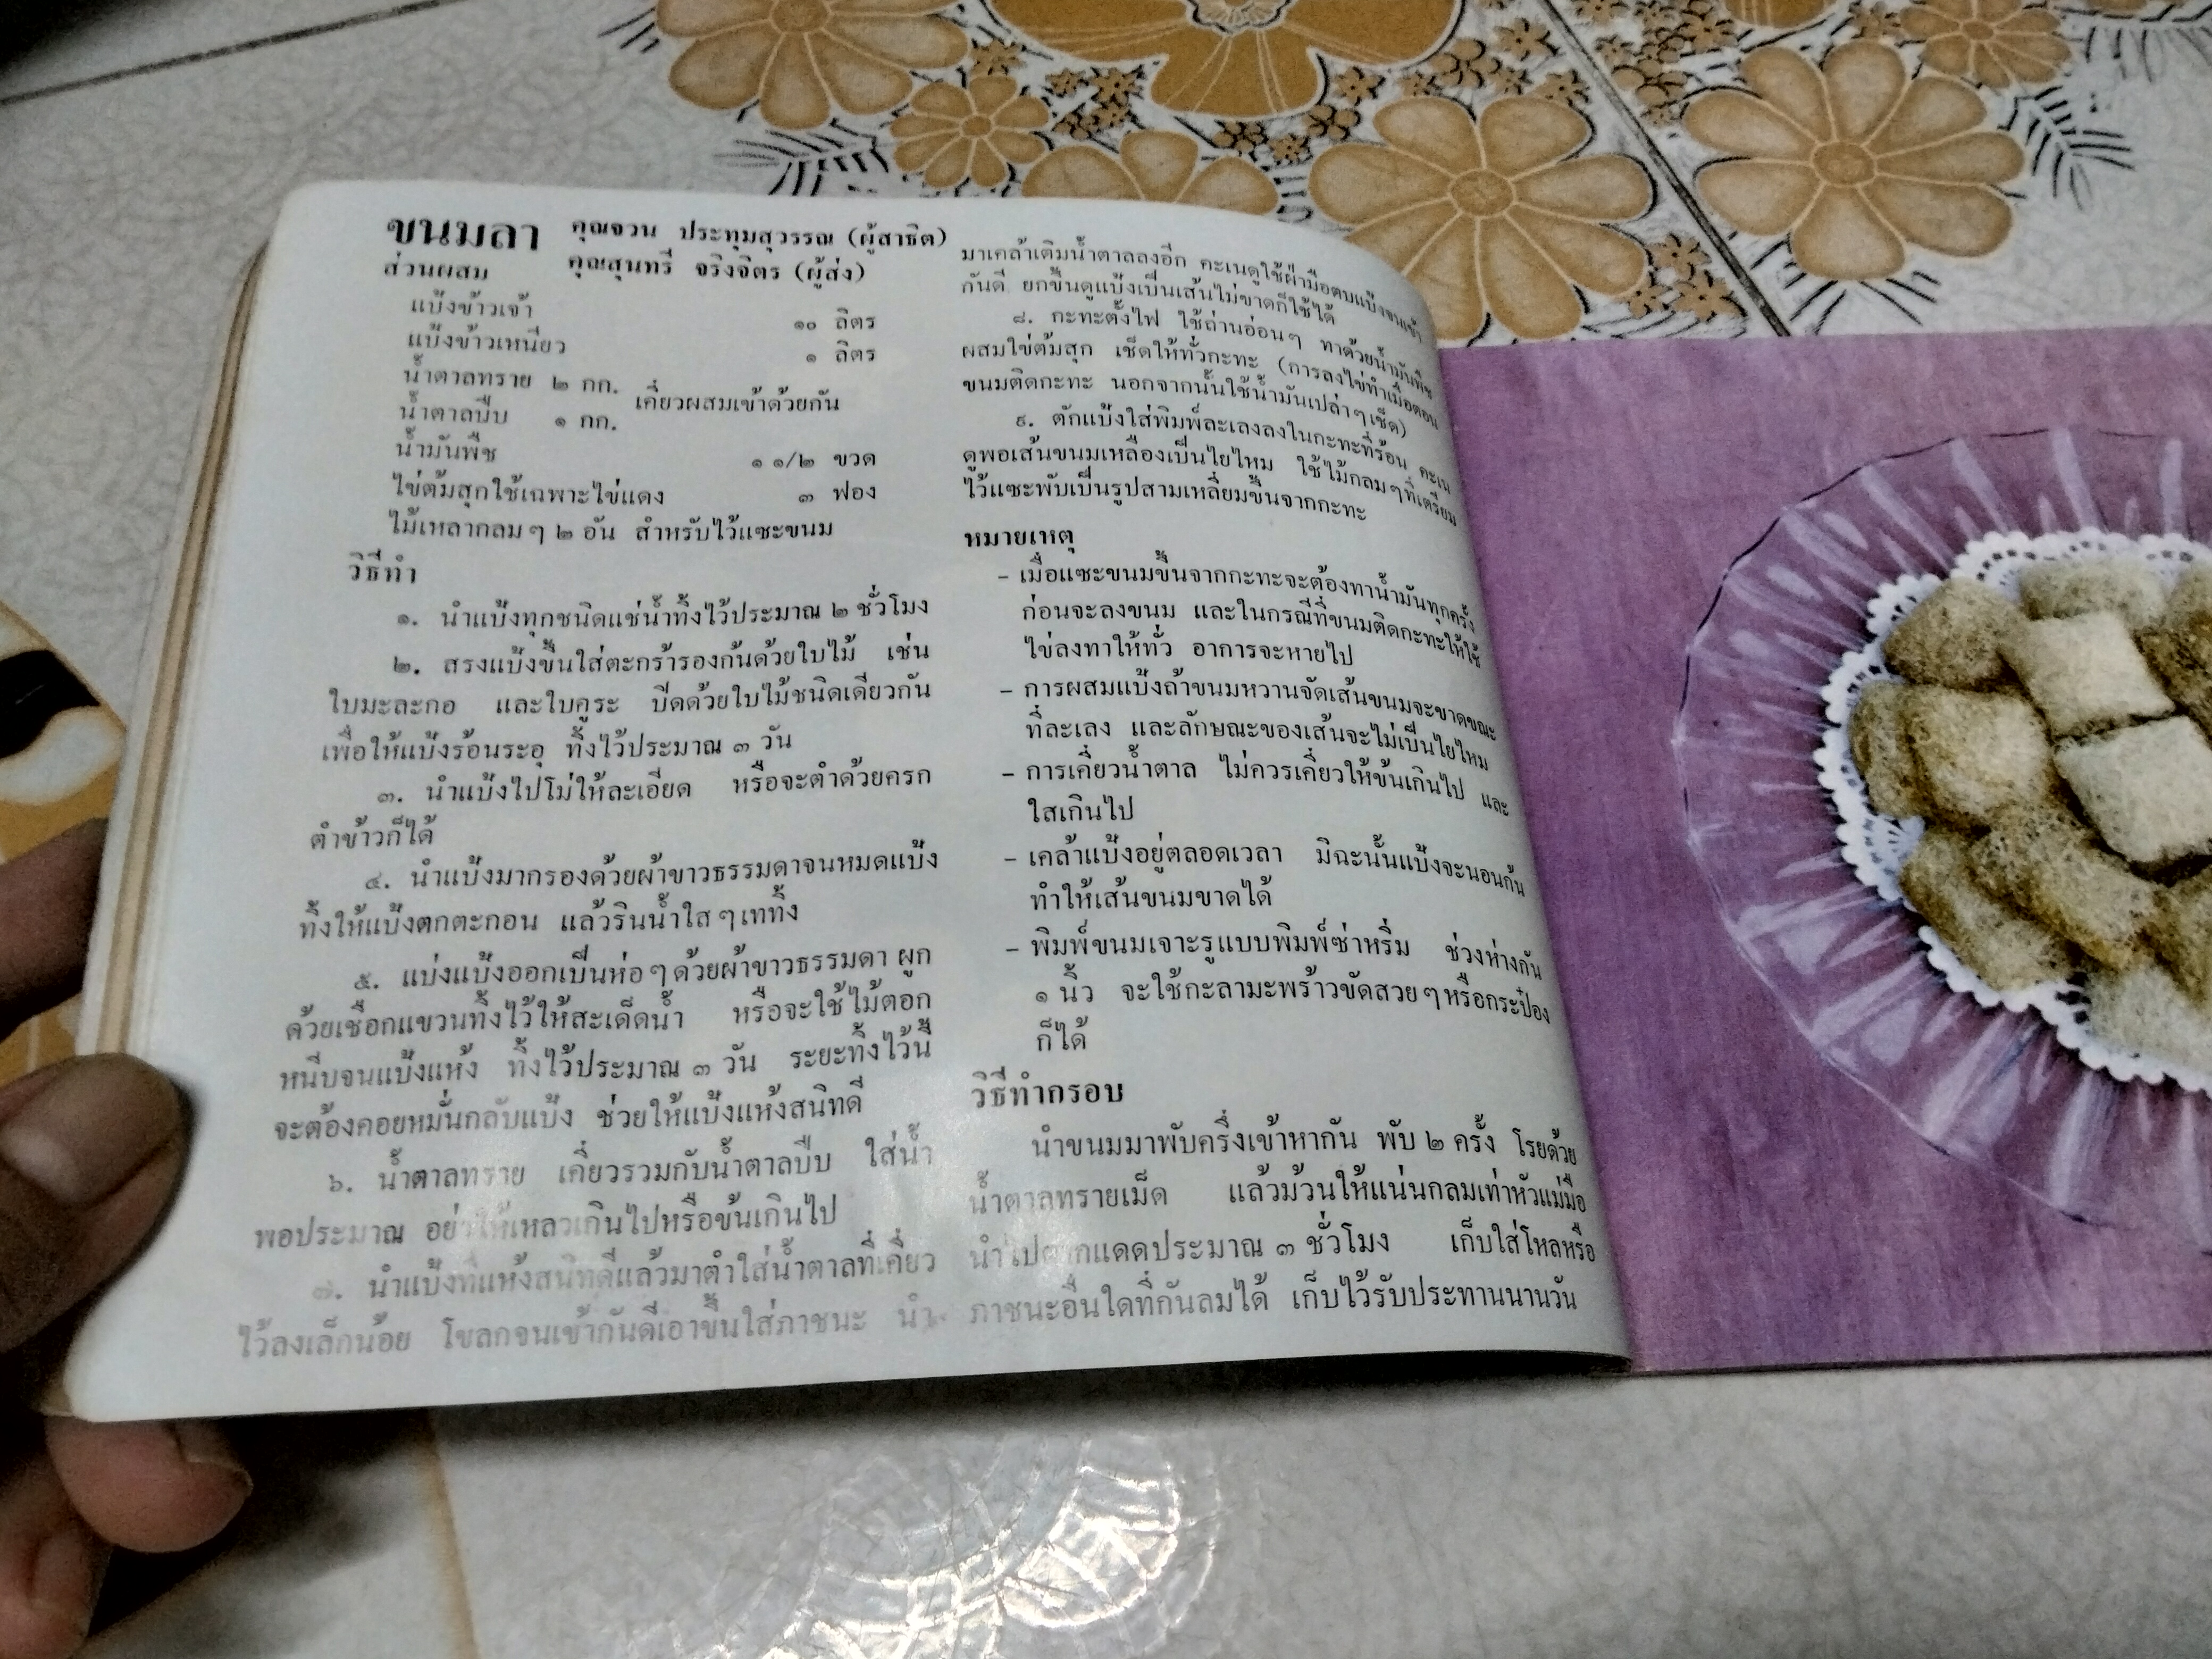 ขนมลา คุณจวน ประทุมสุวรรณ (ผู้สาธิต)
คุณสุนทรี จริงจิตร (ผู้ส่ง)
ส่วนผสม
แป้งข้าวเจ้า ๑๐ ลิตร
แป้งข้าวเหนียว ๑ ลิตร
น้ำตาลทราย ๒ กก.
เคี่ยวผสมเข้าด้วยกัน
น้ำตาลปีบ ๑ กก.
น้ำมันพืช ๑ ๑/๒ ขวด
ไข่ต้มสุกใช้เฉพาะไข่แดง ๓ ฟอง
ไม้เหลากลมๆ ๒ อัน สำหรับไว้แซะขนม
วิธีทำ
๑. นำแป้งทุกชนิดแช่น้ำทิ้งไว้ประมาณ ๒ ชั่วโมง
๒. สรงแป้งขึ้นใส่ตะกร้ารองก้นด้วยใบไม้ เช่น
ใบมะละกอ และใบคูระ ปิดด้วยใบไม้ชนิดเดียวกัน
เพื่อให้แป้งร้อนระอุ ทิ้งไว้ประมาณ ๓ วัน
๓. นำแป้งไปโม่ให้ละเอียด หรือจะตำด้วยครก
ตำข้าวก็ได้
๔. นำแป้งมากรองด้วยผ้าขาวธรรมดาจนหมดแป้ง
ทิ้งให้แป้งตกตะกอน แล้วรินน้ำใสๆเททิ้ง
๕. แบ่งแป้งออกเป็นห่อๆด้วยผ้าขาวธรรมดา ผูก
ด้วยเชือกแขวนทิ้งไว้ให้สะเด็ดน้ำ หรือจะใช้ไม้ตอก
หนีบจนแป้งแห้ง ทิ้งไว้ประมาณ ๓ วัน ระยะทิ้งไว้นี้
จะต้องคอยหมั่นกลับแป้ง ช่วยให้แป้งแห้งสนิทดี
๖. น้ำตาลทราย เคี่ยวรวมกับน้ำตาลปีบ ใส่น้ำ
พอประมาณ อย่าให้เหลวเกินไปหรือข้นเกินไป
๗. นำแป้งที่แห้งสนิทดีแล้วมาตำใส่น้ำตาลที่เคี่ยว
ไว้ลงเล็กน้อย โขลกจนเข้ากันดีเอาขึ้นใส่ภาชนะ นำ
มาเคล้าเติมน้ำตาลลงอีก คะเนดูใช้ฝ่ามือตบแป้งจนเข้า
กันดี ยกขึ้นดูแป้งเป็นเส้นไม่ขาดก็ใช้ได้
๘. กะทะตั้งไฟ ใช้ถ่านอ่อนๆ ทาด้วยน้ำมันพืช
ผสมไข่ต้มสุก เช็ดให้ทั่วกะทะ (การลงไข่ทำเมื่อตอน
ขนมติดกะทะ นอกจากนั้นใช้น้ำมันเปล่าๆเช็ด)
๙. ตักแป้งใส่พิมพ์ละเลงลงในกะทะที่ร้อน คะเน
ดูพอเส้นขนมเหลืองเป็นใยไหม ใช้ไม้กลมๆที่เตรียม
ไว้แซะพับเป็นรูปสามเหลี่ยมขึ้นจากกะทะ
หมายเหตุ
- เมื่อแซะขนมขึ้นจากกะทะจะต้องทาน้ำมันทุกครั้ง
ก่อนจะลงขนม และในกรณีที่ขนมติดกะทะให้ใช้
ไข่ลงทาให้ทั่ว อาการจะหายไป
- การผสมแป้งถ้าขนมหวานจัดเส้นขนมจะขาดขณะ
ที่ละเลง และลักษณะของเส้นจะไม่เป็นใยไหม
- การเคี่ยวน้ำตาล ไม่ควรเคี่ยวให้ข้นเกินไป และ
ใสเกินไป
- เคล้าแป้งอยู่ตลอดเวลา มิฉะนั้นแป้งจะนอนก้น
ทำให้เส้นขนมขาดได้
- พิมพ์ขนมเจาะรูแบบพิมพ์ซ่าหริ่ม ช่วงห่างกัน
๑ นิ้ว จะใช้กะลามะพร้าวขัดสวยๆหรือกระป๋อง
ก็ได้
วิธีทำกรอบ
นำขนมมาพับครึ่งเข้าหากัน พับ ๒ ครั้ง โรยด้วย
น้ำตาลทรายเม็ด แล้วม้วนให้แน่นกลมเท่าหัวแม่มือ
นำไปตากแดดประมาณ ๓ ชั่วโมง เก็บใส่โหลหรือ
ภาชนะอื่นใดที่กันลมได้ เก็บไว้รับประทานนานวัน